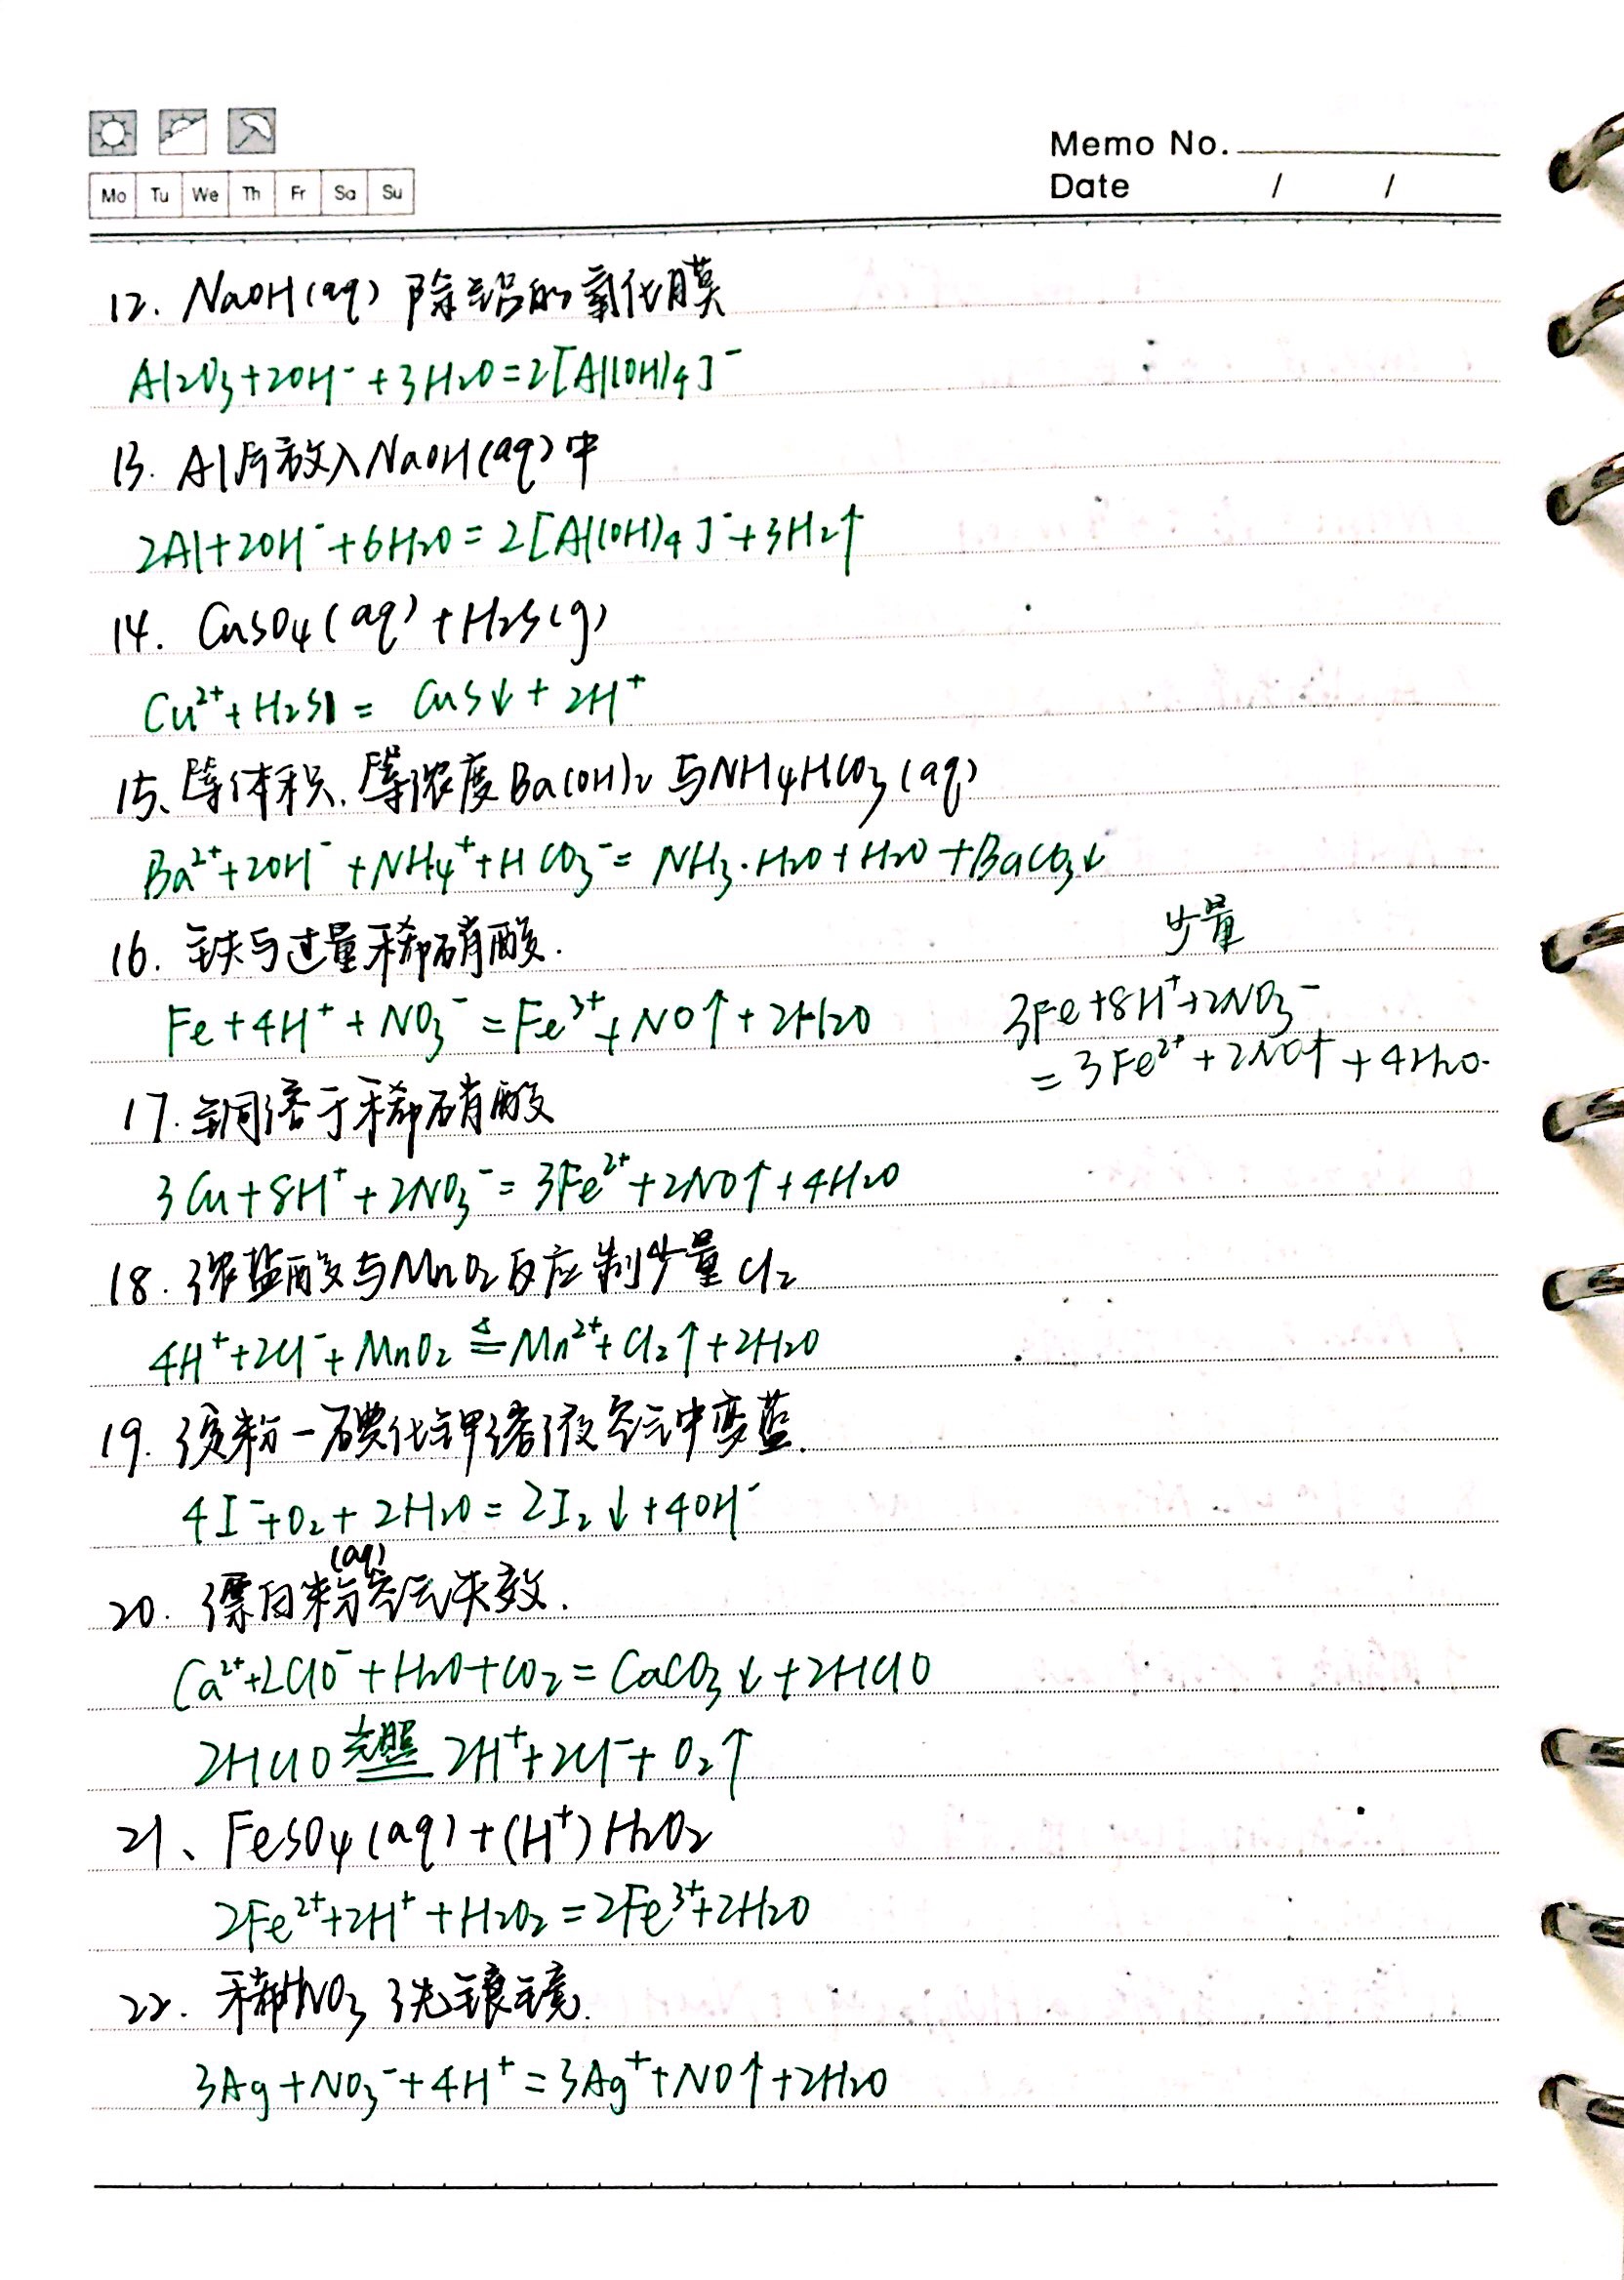 Memo No.
Mo Tu We Th Fr Sa Su
Date / /
12. NaOH(aq) 除铝的氧化膜
Al₂O₃+2OH⁻+3H₂O=2[Al(OH)₄]⁻
13. Al片放入NaOH(aq)中
2Al+2OH⁻+6H₂O=2[Al(OH)₄]⁻+3H₂↑
14. CuSO₄(aq)+H₂S(g)
Cu²⁺+H₂S=CuS↓+2H⁺
15、等体积、等浓度Ba(OH)₂与NH₄HCO₃(aq)
Ba²⁺+2OH⁻+NH₄⁺+HCO₃⁻=NH₃·H₂O+H₂O+BaCO₃↓
16. 铁与过量稀硝酸.
少量
Fe+4H⁺+NO₃⁻=Fe³⁺+NO↑+2H₂O
3Fe+8H⁺+2NO₃⁻
=3Fe²⁺+2NO↑+4H₂O.
17. 铜溶于稀硝酸
3Cu+8H⁺+2NO₃⁻=3Fe²⁺+2NO↑+4H₂O
18. 浓盐酸与MnO₂反应制少量Cl₂
4H⁺+2Cl⁻+MnO₂ ≜ Mn²⁺+Cl₂↑+2H₂O
19. 淀粉-碘化钾溶液空气中变蓝.
4I⁻+O₂+2H₂O=2I₂↓+4OH⁻
20. 漂白粉(aq)空气失效.
Ca²⁺+2ClO⁻+H₂O+CO₂=CaCO₃↓+2HClO
2HClO 光照 2H⁺+2Cl⁻+O₂↑
21、FeSO₄(aq)+(H⁺)H₂O₂
2Fe²⁺+2H⁺+H₂O₂=2Fe³⁺+2H₂O
22. 稀HNO₃洗银镜.
3Ag+NO₃⁻+4H⁺=3Ag⁺+NO↑+2H₂O